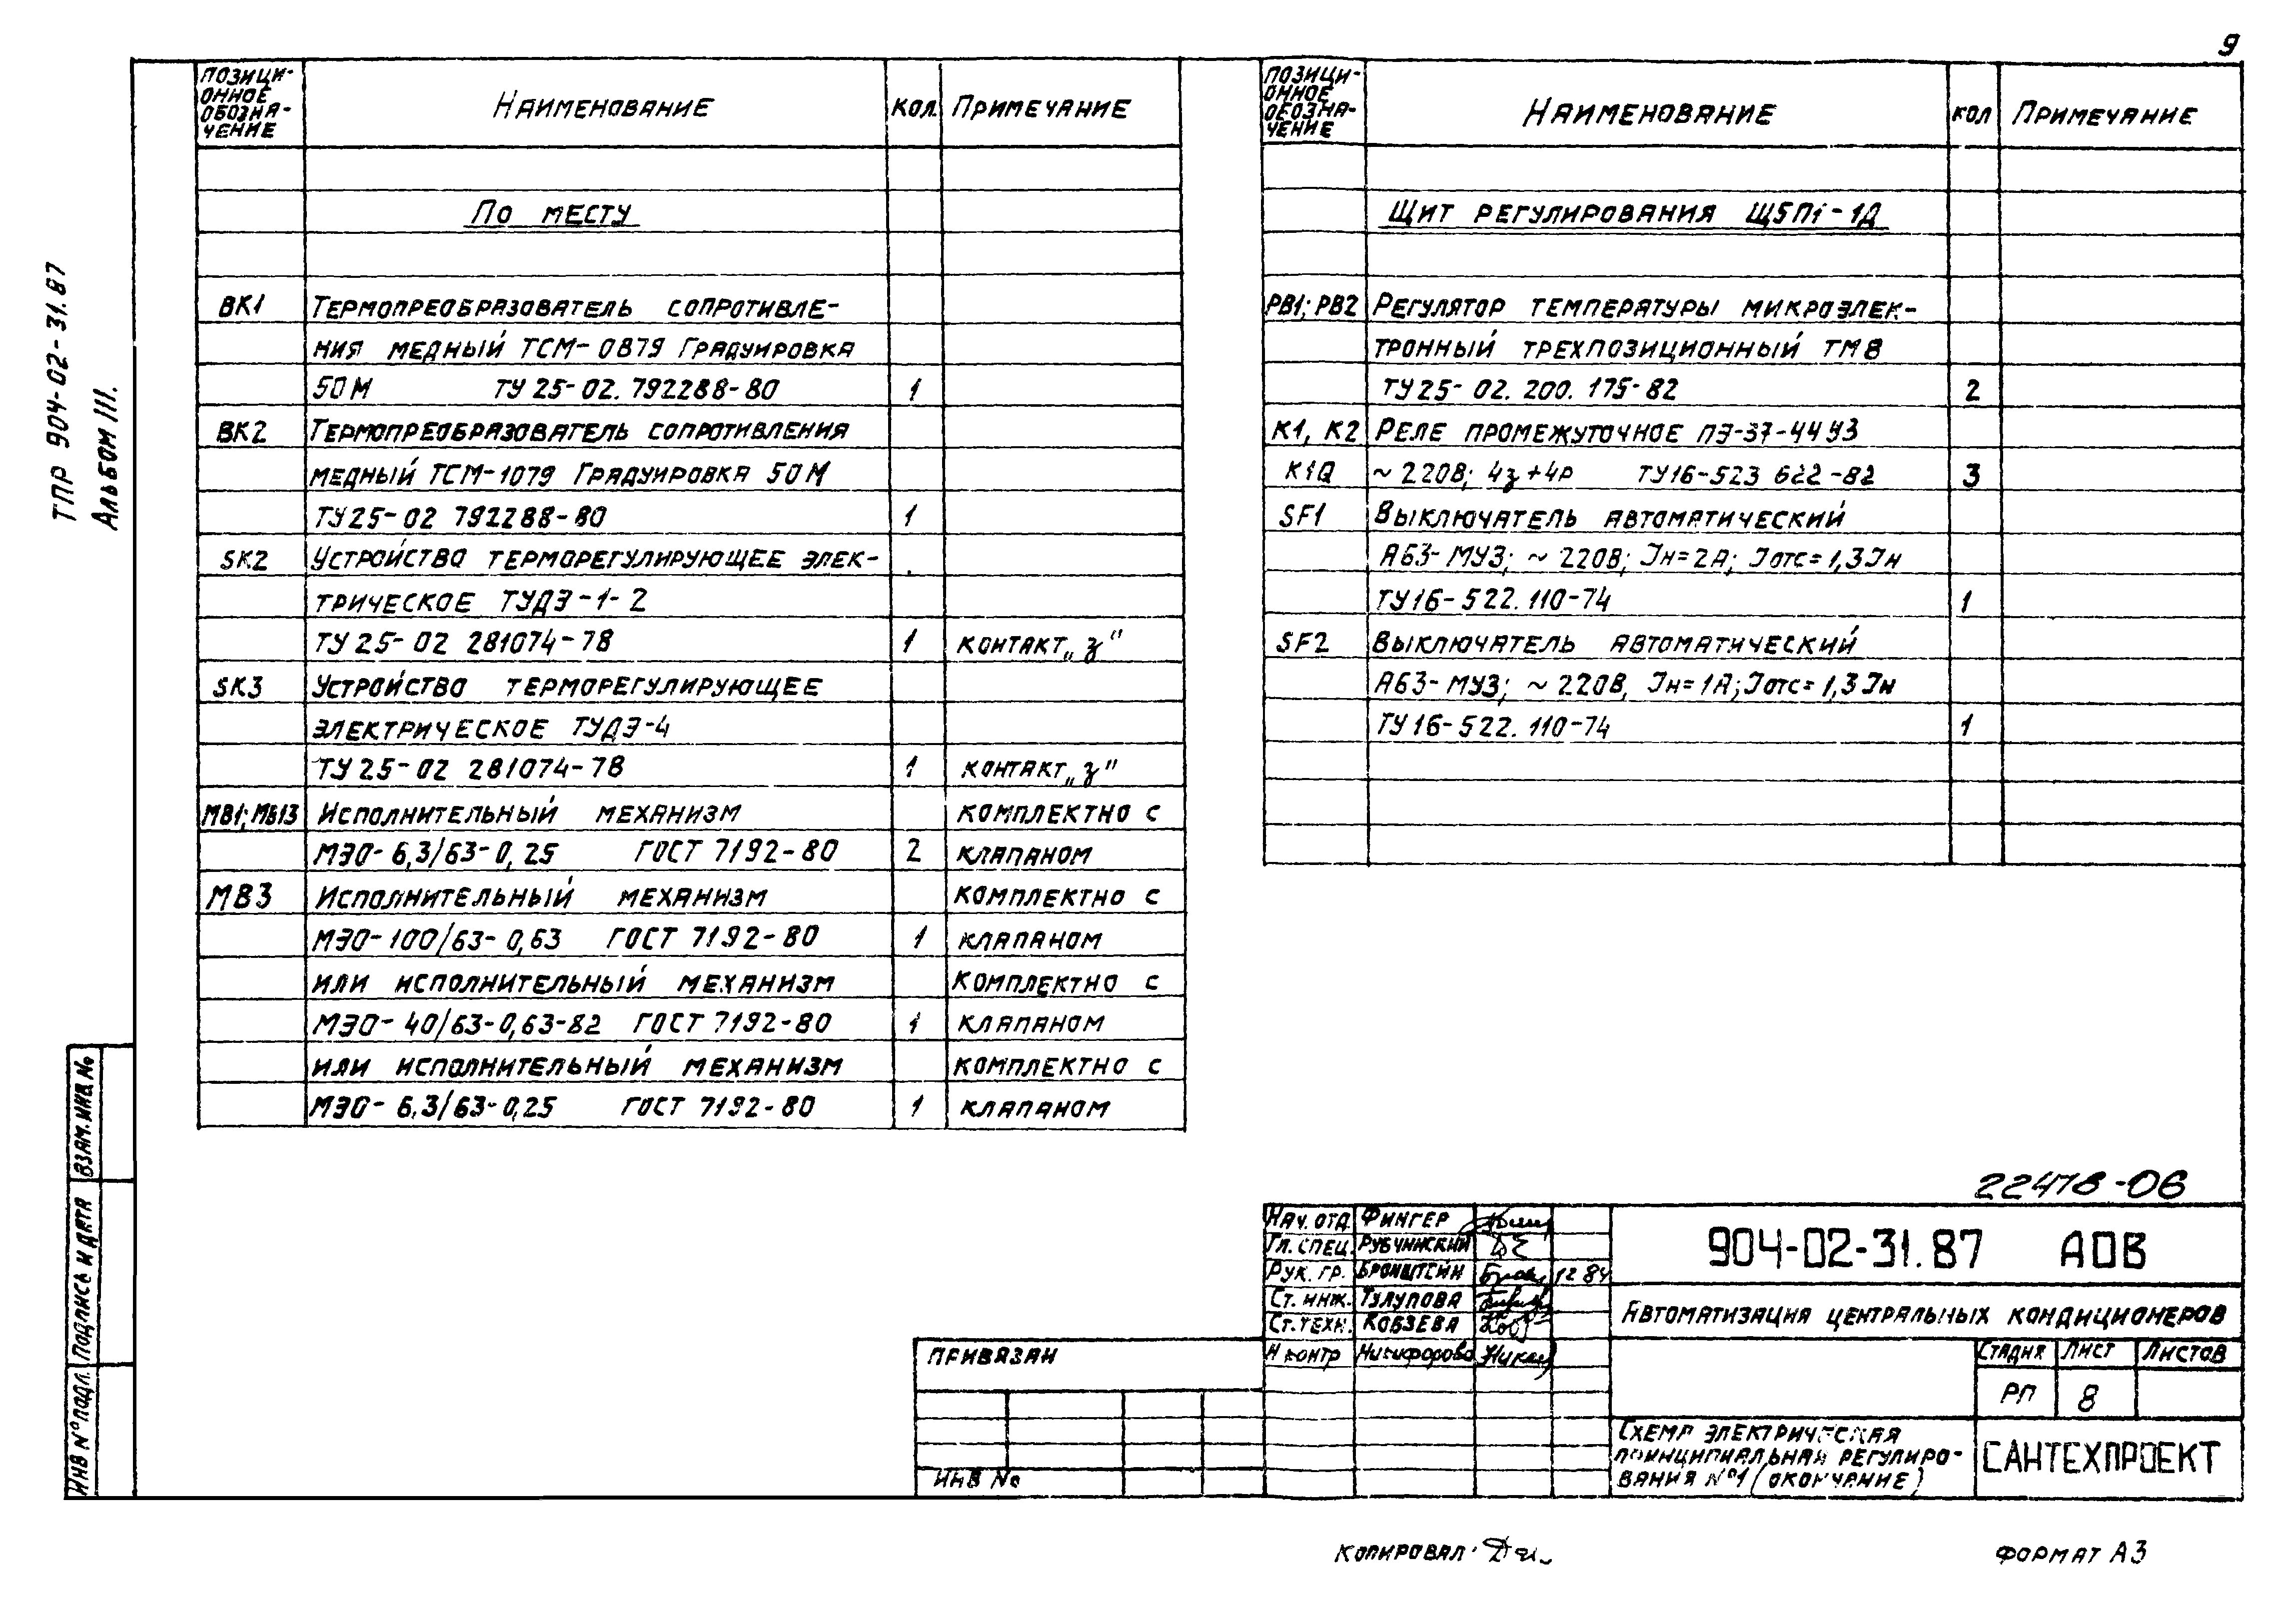 9
ТПР 904-02-31.87
Альбом III.
Позици-
онное
обозна-
чение
Наименование
Кол.
Примечание
По месту
ВК1 Термопреобразователь сопротивле-
ния медный ТСМ-0879 Градуировка
50М ТУ 25-02.792288-80 1
ВК2 Термопреобразователь сопротивления
медный ТСМ-1079 Градуировка 50М
ТУ25-02 792288-80 1
SK2 Устройство терморегулирующее элек-
трическое ТУДЭ-1-2
ТУ 25-02 281074-78 1 контакт „з"
SK3 Устройство терморегулирующее
электрическое ТУДЭ-4
ТУ 25-02 281074-78 1 контакт „з"
МВ1; МВ13 Исполнительный механизм комплектно с
МЭО-6,3/63-0,25 ГОСТ 7192-80 2 клапаном
МВ3 Исполнительный механизм комплектно с
МЭО-100/63-0,63 ГОСТ 7192-80 1 клапаном
или исполнительный механизм комплектно с
МЭО-40/63-0,63-82 ГОСТ 7192-80 1 клапаном
или исполнительный механизм комплектно с
МЭО-6,3/63-0,25 ГОСТ 7192-80 1 клапаном
Позици-
онное
обозна-
чение
Наименование
Кол
Примечание
Щит регулирования Щ5П1-1Д
РВ1; РВ2 Регулятор температуры микроэлек-
тронный трехпозиционный ТМ8
ТУ25-02.200.175-82 2
К1, К2 Реле промежуточное ПЭ-37-44У3
К1Q ~220В; 4з+4р ТУ16-523 622-82 3
SF1 Выключатель автоматический
А63-МУ3; ~220В; Iн=2А; Iотс=1,3Iн
ТУ16-522.110-74 1
SF2 Выключатель автоматический
А63-МУ3; ~220В, Iн=1А; Iотс=1,3Iн
ТУ16-522.110-74 1
22478-06
Нач. отд. Фингер
Гл. спец. Рубчинский
Рук. гр. Бронштейн 12 84
Ст. инж. Тулупова
Ст. техн. Кобзева
Н контр Никифорова
904-02-31.87 АОВ
Автоматизация центральных кондиционеров
Стадия Лист Листов
РП 8
Схема электрическая
принципиальная регулиро-
вания №1 (окончание)
САНТЕХПРОЕКТ
Привязан
Инв №
Взам. инв №
Подпись и дата
Инв № подл.
Копировал:
Формат А3